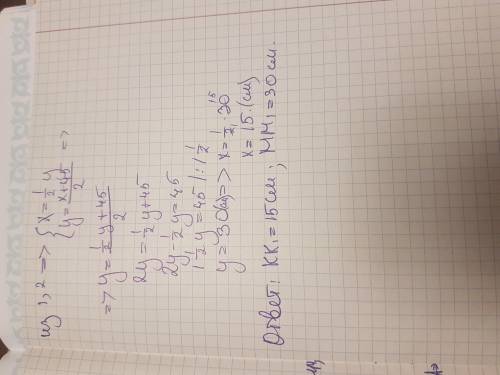 из 1,2 => { x = 1/2 y
y = (x+45)/2 =>
=> y = (1/2 y + 45)/2
2y = 1/2 y + 45
2y - 1/2 y = 45
1 1/2 y = 45 | : 1 1/2
y = 30(см) => x = 1/2 · 30 15
x = 15 (см)
Ответ: KK₁ = 15 см; MM₁ = 30 см.